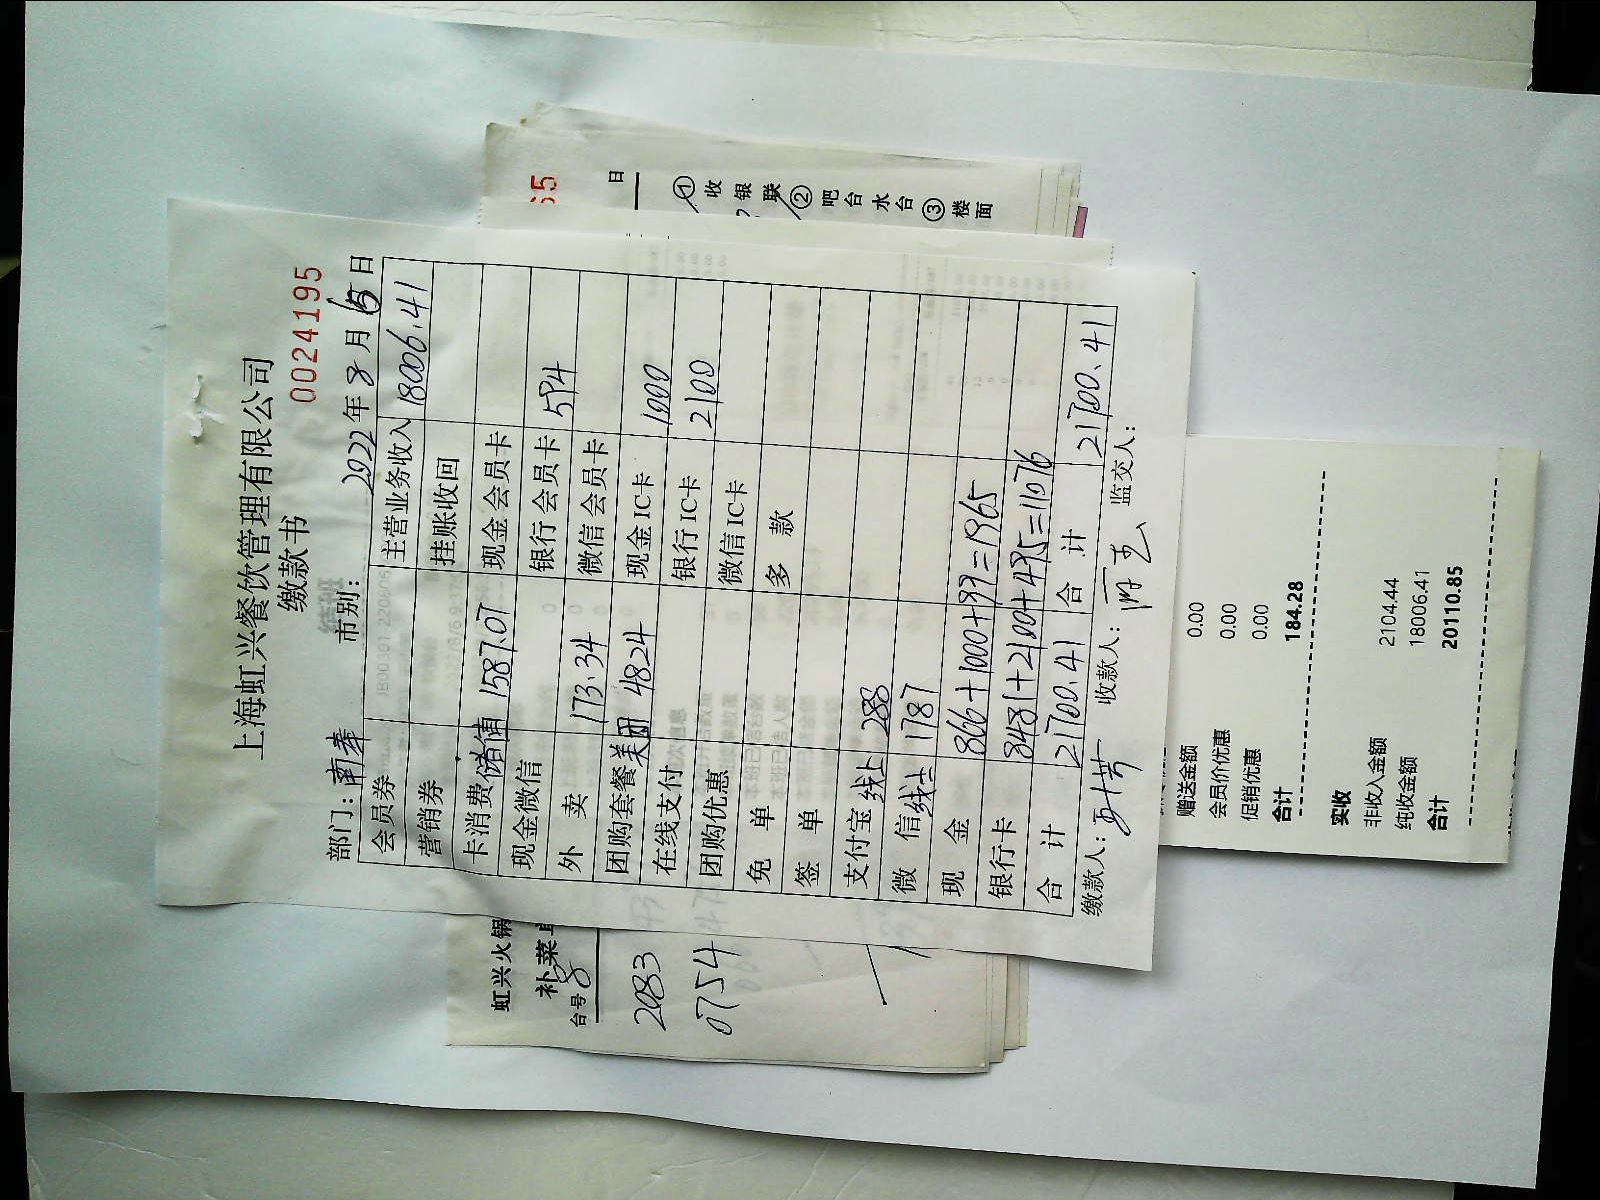 上海虹兴餐饮管理有限公司
缴款书
0024195
部门：南奉 市别： 2022 年 8 月 15 日
会员券 主营业务收入 18006.41
营销券 挂账收回
卡消费储值 1587.07 现金会员卡
现金微信 银行会员卡 594
外 卖 173.34 微信会员卡
团购套餐美团 4824 现金IC卡 1000
在线支付 银行IC卡 2100
团购优惠 微信IC卡
免 单 多 款
签 单
支付宝线上 288
微 信线上 1787
现 金 866+1000+99=1965
银行卡 8481+2100+495=11076
合 计 21700.41 合 计 21700.41
缴款人： 收款人： 监交人：
65
日
① 收银联 ② 吧台水台 ③ 楼面
虹兴火锅
补菜单
台号 8
2083
0754
0.00
赠送金额 0.00
会员价优惠 0.00
促销优惠 0.00
合计 184.28
实收
非收入金额 2104.44
纯收金额 18006.41
合计 20110.85